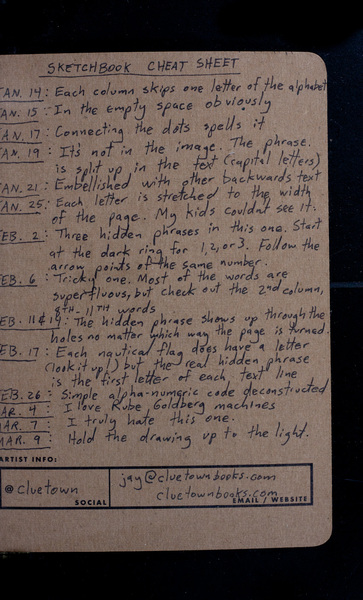 SKETCHBOOK CHEAT SHEET
JAN. 14: Each column skips one letter of the alphabet
JAN. 15: In the empty space obviously
JAN. 17: Connecting the dots spells it
JAN. 19: It's not in the image. The phrase
is split up in the text (capital letters)
JAN. 21: Embellished with other backwards text
JAN. 25: Each letter is stretched to the width
of the page. My kids couldn't see it.
FEB. 2: Three hidden phrases in this one. Start
at the dark ring for 1, 2, or 3. Follow the
arrow points of the same number.
FEB. 6: Tricky one. Most of the words are
superfluous, but check out the 2nd column,
8th - 11th words
FEB. 11 & 14: The hidden phrase shows up through the
holes no matter which way the page is turned.
FEB. 17: Each nautical flag does have a letter
(look it up!) but the real hidden phrase
is the first letter of each text line
FEB. 26: Simple alpha-numeric code deconstructed
MAR. 4: I love Rube Goldberg machines
MAR. 7: I truly hate this one.
MAR. 9: Hold the drawing up to the light.
ARTIST INFO:
@cluetown
SOCIAL
jay@cluetownbooks.com
cluetownbooks.com
EMAIL / WEBSITE